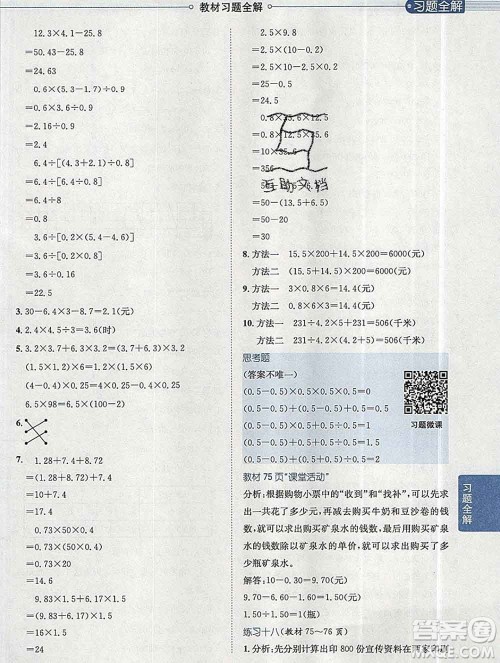 教材习题全解
习题全解
12.3×4.1-25.8
=50.43-25.8
=24.63
0.6×(5.4-1.8)÷0.9
=0.6×3.6÷0.9
=2.16÷0.9
=2.4
6.4÷[(4.3+2.1)÷0.8]
=6.4÷[6.4÷0.8]
=6.4÷8
=0.8
3.6÷[0.2×(5.4-4.6)]
=3.6÷[0.2×0.8]
=3.6÷0.16
=22.5
3. 30-6.4×3-8.7=2.1(元)
4. 2.4×4.5÷3=3.6(时)
5. 3.2×3.7+6.3×3.2=(3.7+6.3)×3.2
(1.5×4)×2.5=1.5×(4×2.5)
(4-0.4)×0.25=4×0.25-0.4×0.25
6.5×98=6.5×(100-2)
6.
7. 1.28+7.4+8.72
=(1.28+8.72)+7.4
=10+7.4
=17.4
0.73×50×0.4
=0.73×(50×0.4)
=0.73×20
=14.6
9.83×1.5+6.17×1.5
=(9.83+6.17)×1.5
=16×1.5
=24
2.5×9.8
=2.5×(10-0.2)
=2.5×10-2.5×0.2
=25-0.5
=24.5
0.8×35.6×12.5
=0.8×12.5×35.6
=10×35.6
=356
互助文档
=50-(13.5+6.5)
=50-20
=30
8. 方法一 15.5×200+14.5×200=6000(元)
方法二 (15.5+14.5)×200=6000(元)
9. 方法一 3×0.8×6=14.4(元)
方法二 0.8×(3×6)=14.4(元)
10. 方法一 231÷4.2×5+231=506(千米)
方法二 231÷4.2×(4.2+5)=506(千米)
思考题
(答案不唯一)
(0.5-0.5)×0.5×0.5×0.5=0
(0.5-0.5)×0.5÷0.5+0.5=0.5
(0.5-0.5)×0.5+0.5÷0.5=1
(0.5-0.5)÷0.5+0.5+0.5=1
(0.5+0.5+0.5-0.5)÷0.5=2
习题微课
教材75页“课堂活动”
分析:根据购物小票中的“收到”和“找补”,可以求
出一共花了多少元,再减去购买牛奶和豆沙卷的
钱数,就可以求出购买矿泉水的钱数,最后用矿泉水
的钱数除以矿泉水的单价,就可以求出购买了多少
瓶矿泉水。
解答:10-0.30=9.70(元)
9.70-6.60-1.60=1.50(元)
1.50÷1.50=1(瓶)
练习十八(教材75~76页)
1. 分析:先分别计算出印800份宣传资料在两家印刷
习题全解
答案圈